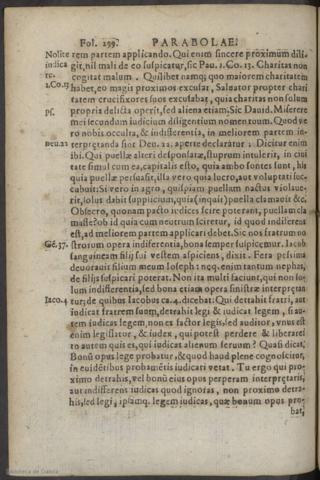 Fol. 299. PARABOLAE.
Nolite rem partem applicando. Qui enim sincere proximum dili-
iudica git, nil mali de eo suspicatur, sic Pau. 1. Co. 13. Charitas non
re. cogitat malum. Quilibet namq; quo maiorem charitatem
1. Co. 13 habet, eo magis proximos excusat, Saluator propter chari
tatem crucifixores suos excusabat, quia charitas non solum
ps. propria delicta operit, sed aliena etiam. Sic Dauid. Miserere
mei secundum iudicium diligentium nomen tuum. Quod ve
ro nobis occulta, & indifferentia, in meliorem partem in-
Deu. 22 terpretanda sint Deu. 22. aperte declaratur: Dicitur enim
ibi. Qui puellæ alteri desponsatæ, stuprum intulerit, in ciui
tate simul cum ea, capitalis esto, quia ambo sontes sunt, his
quia puellæ persuasit, illa vero quia lucro, aut voluptati suc-
cubuit: Si vero in agro, quispiam puellam nactus violaue-
rit, solus dabit supplicium, quia (inquit) puella clamauit &c.
Obsecro, quonam pacto iudices scire poterant, puellam cla
masse? ob id quia cum neutrum sciretur, id quod indifferens
est, ad meliorem partem applicari debet. Sic nos fratrum no
Gé. 37. strorum opera indifferentia, bona semper suspicemur. Iacob
sanguineam filij sui vestem aspiciens, dixit. Fera pessima
deuorauit filium meum Ioseph: neq. enim tantum nephas,
de filijs suspicari poterat. Non ita multi faciunt, qui non so-
lum indifferentia, sed bona etiam opera sinistræ interpretan
Iaco. 4 tur, de quibus Iacobus ca. 4. dicebat: Qui detrahit fratri, aut
iudicat fratrem suum, detrahit legi & iudicat legem, si au-
tem iudicas legem, non es factor legis, sed auditor, vnus est
enim legislator, & iudex, qui potest perdere & liberare:
tu autem quis es, qui iudicas alienum seruum? Quasi dicat,
Bonū opus lege probatur, & quod haud plene cognoscitur,
in euidētibus probamētis iudicari vetat. Tu ergo qui pro-
ximo detrahis, vel bonū eius opus perperam interpretaris,
aut indifferens iudicas quod ignoras, non proximo detra-
his, sed legi, ipsamq. legem iudicas, quæ bonum opus pro-
bat,